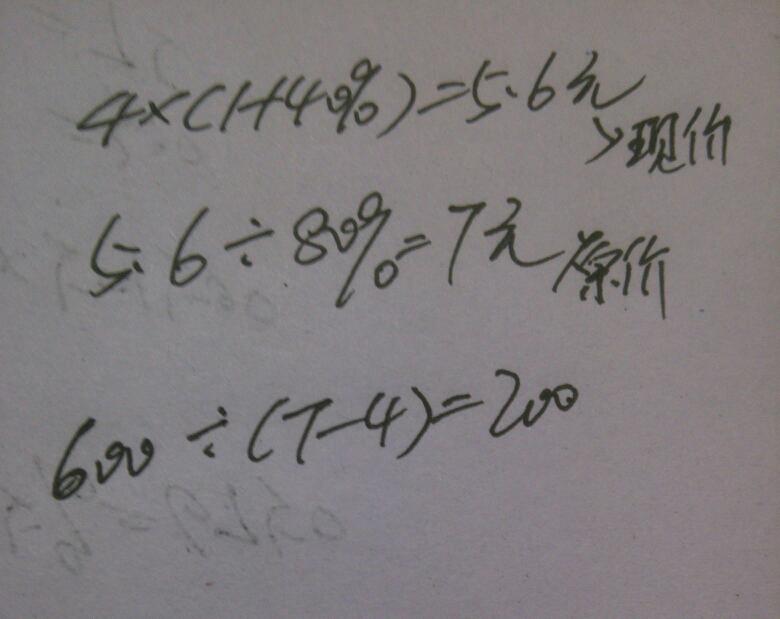 4×(1+40%)=5.6元
现价
5.6÷80%=7元 原价
600÷(7-4)=200